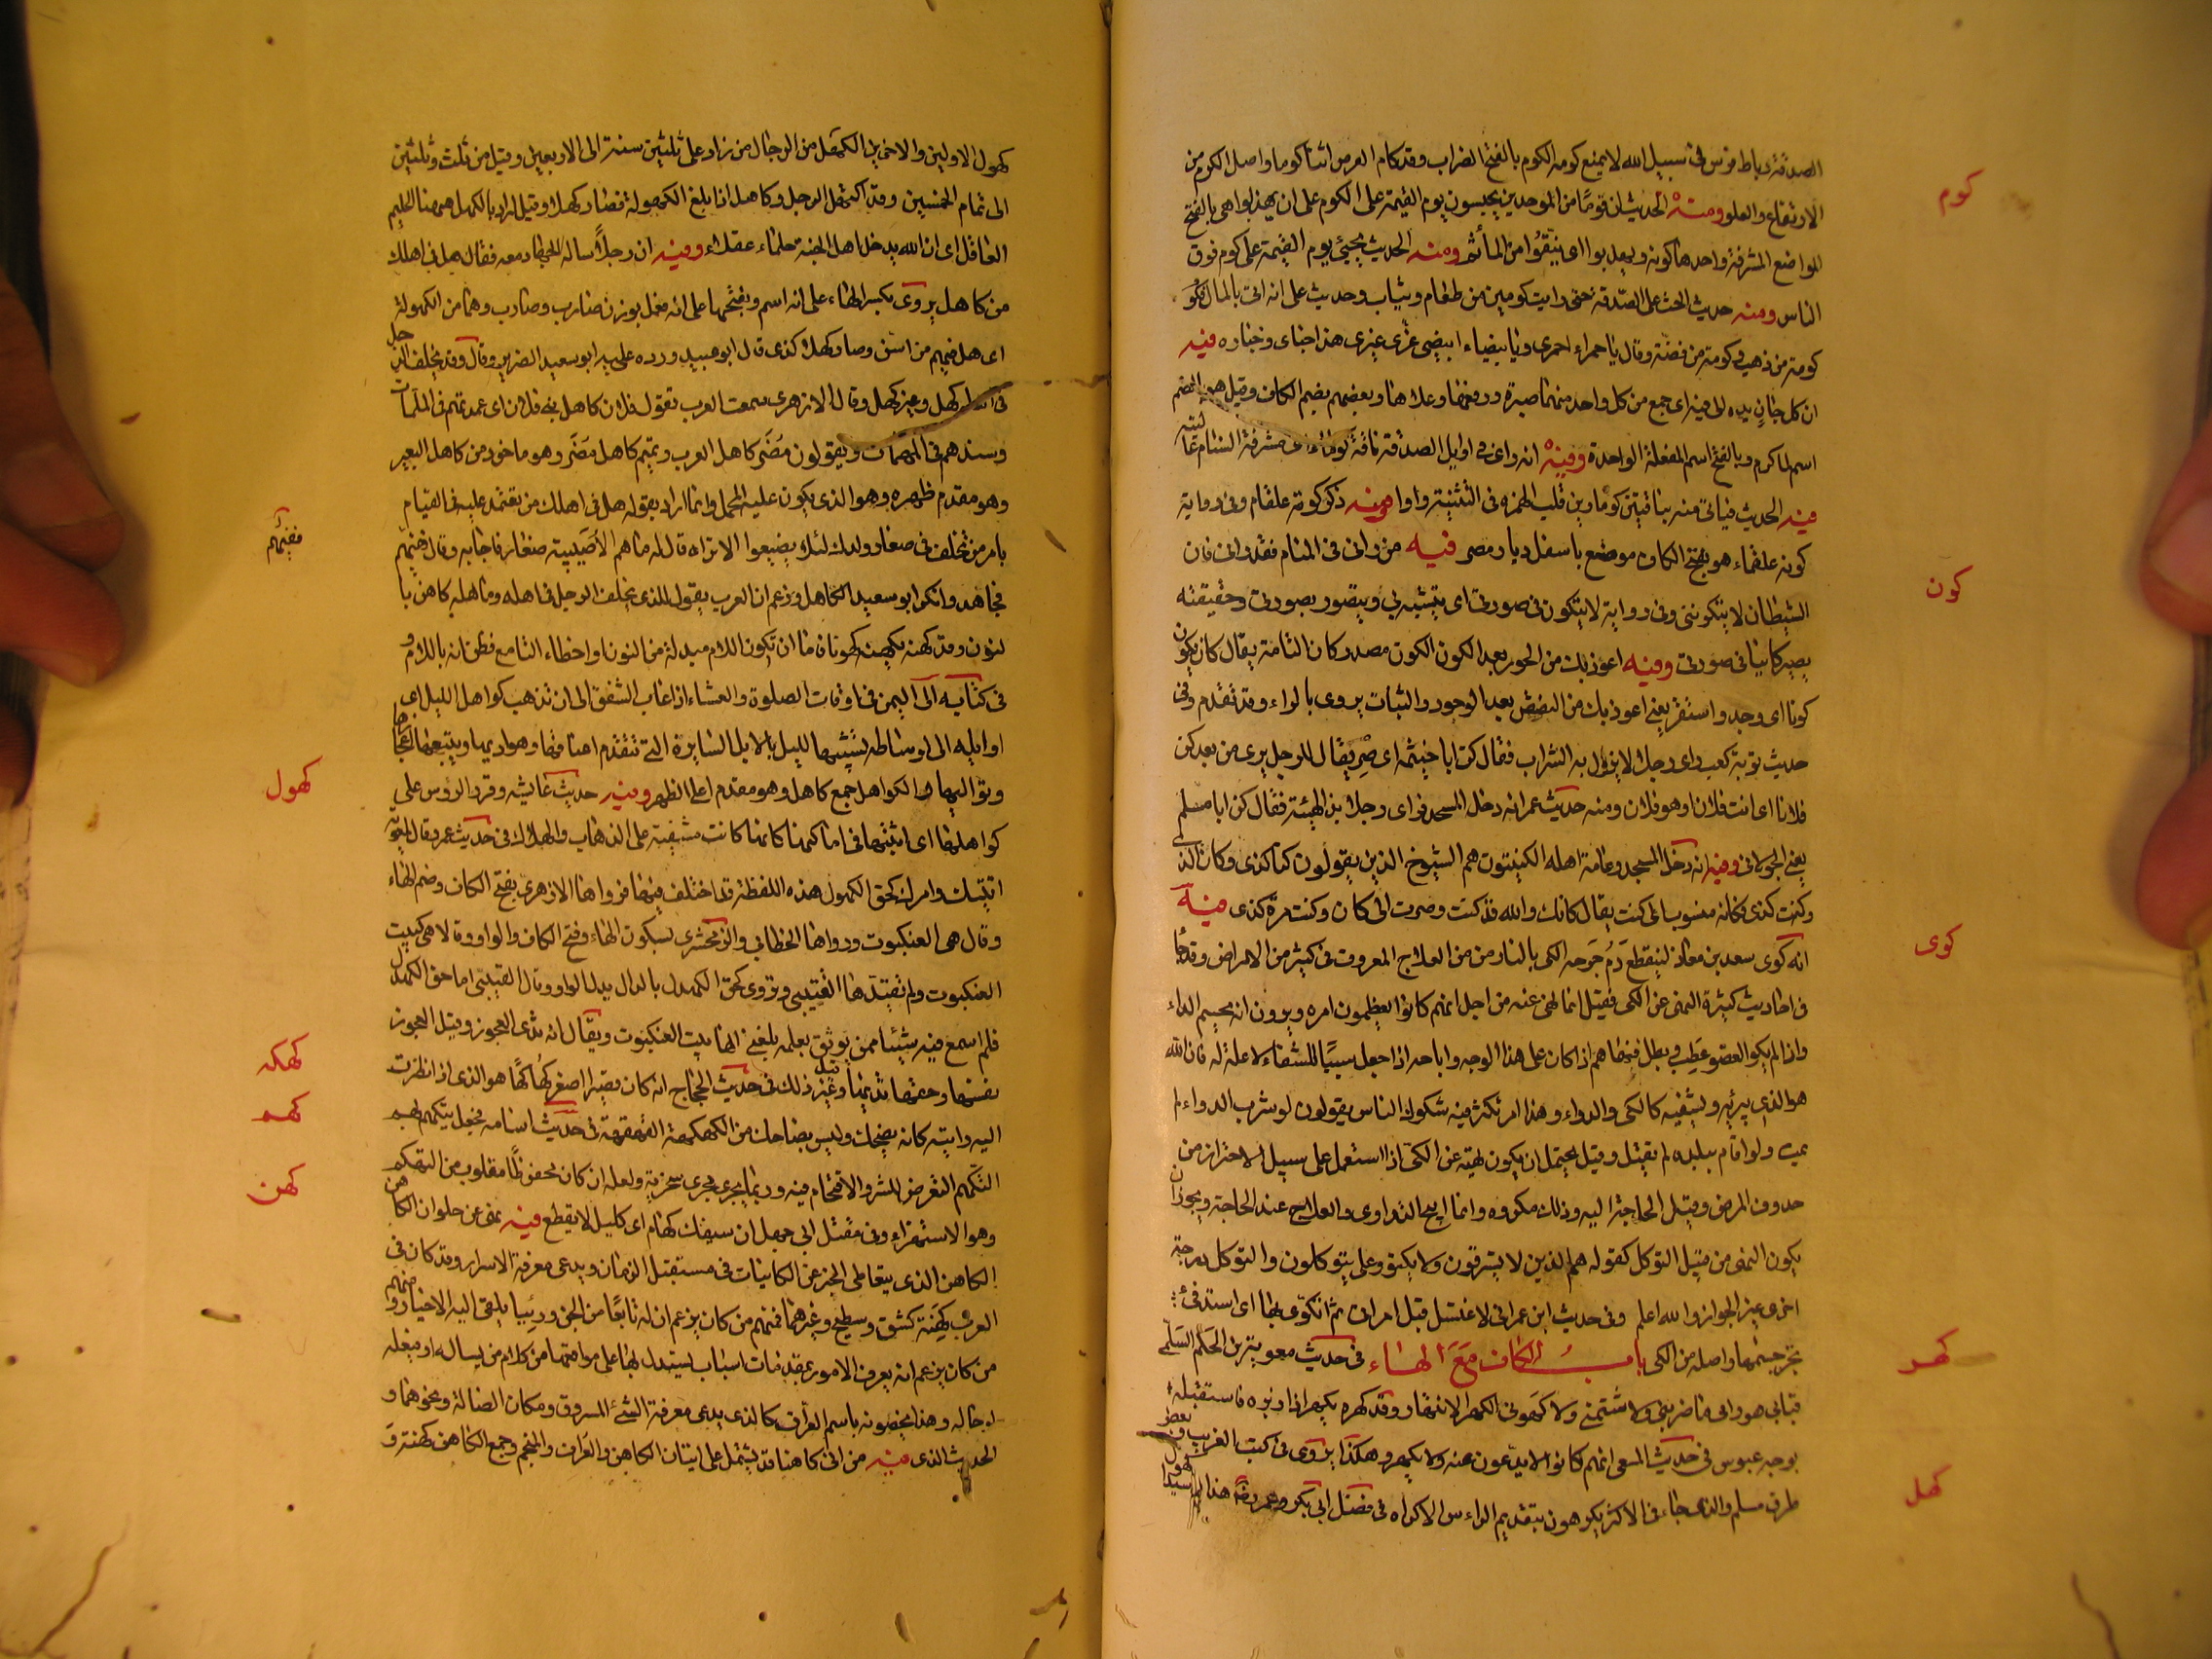 الصدقة رباط فرس فى سبيل الله لا يمنع كومه الكوم بالفتح الضراب وقد كام الفرس انثاه كوما واصل الكوم من
كوم
الارتفاع والعلو ومنه الحديث ان قومًا من الموحدين يحبسون يوم القيمة على الكوم على ان يهذبوا هى بالفتح
المواضع المشرفة واحدها كومة ويهذبوا اى ينقوا من المأثم ومنه الحديث يجيئ يوم القيمة على كوم فوق
الناس ومنه حديث الحث على الصدقة حتى رايت كومين من طعام وثياب وحديث على انه اتى بالمال فكوّ
كومة من ذهب وكومة من فضة وقال يا حمراء احمرى ويا بيضاء ابيضى غرّى غيرى هذا جناى وخياره فيه
ان كل جانٍ يده الى فيه اى جمع من كل واحد منهما صبرة ورفعها وعلاها وبعضهم يضم الكاف وقيل هو بالضم
اسم لما كوم وبالفتح اسم المفعلة الواحدة وفيه انه راى فى اوايل الصدقة ناقة كوماء اى مشرفة السنام عاليته
فيه الحديث فياتى منه بناقتين كوماوين قلب الهمزه فى التثنية واوا ومنه ذكر كومة علقام وفى رواية
كومة علقماء هو بفتح الكاف موضع باسفل ديار مصر فيه من رانى فى المنام فقد رانى فان
كون
الشيطان لا يتكوننى وفى رواية لا يتكون فى صورتى اى يتشبه بى ويتصور بصورتى وحقيقته
يصير كاينا فى صورتى وفيه اعوذ بك من الحور بعد الكون الكون مصدر كان التامة يقال كان يكون
كونا اى وجد واستقر يعنى اعوذ بك من النقض بعد الوجود والثبات يروى بالراء وقد تقدم وفى
حديث توبة كعب راى رجلا لا يزول به الشراب فقال كن ابا خيثمه اى صر يقال للرجل يرى من بعد كن
فلانا اى انت فلان او هو فلان ومنه حديث عمر انه دخل المسجد فراى رجلا بذ الهيئة فقال كن ابا مسلم
يعنى الخولانى وفيه انه دخل المسجد وعامة اهله الكنتيون هم الشيوخ الذين يقولون كنا كذى وكان كذى
وكنت كذى فكانه منسوب الى كنت يقال كانك والله قد كنت وصرت الى كان وكنت مرة كذى فيه
كوى
انه كوى سعد بن معاذ لينقطع دم جرحه الكى بالنار من من العلاج المعروف فى كثير من الامراض وقد جا
فى احاديث كثيرة النهى عن الكى فقيل انما نهى عنه من اجل انهم كانوا يعظمون امره ويرون انه يحسم الداء
واذا لم يكو العضو عطب وبطل فنهاهم اذ كان على هذا الوجه واباحه اذا جعل سببًا للشفاء لا علة له فان الله
هو الذى يبرئه ويشفيه كالكى والدواء وهذا امر تكثر فيه شكوك الناس يقولون لو شرب الدواء لم
يمت ولو اقام ببلده لم يقتل وقيل يحتمل ان يكون نهيه عن الكى اذا استعمل على سبيل الاحتراز من
حدوث المرض وقبل الحاجة اليه وذلك مكروه وانما ابيح التداوى والعلاج عند الحاجة ويجوز ان
يكون النهى من قبيل التوكل كقوله هم الذين لا يسترقون ولا يكتوون وعلى يتوكلون والتوكل درجة
اخرى غير الجواز والله اعلم وفى حديث ابن عمر انى لاغتسل قبل امراتى ثم اتكوّى بها اى استدفئ
بحر جسمها واصله من الكى باب الكاف مع الهاء فى حديث معوية بن الحكم السلمى
كهر
فبابى هو وامى ما ضربنى ولا شتمنى ولا كهرنى الكهر الانتهار وقد كهره يكهره اذا زبره فاستقبله
بوجه عبوس فى حديث المسعى انهم كانوا لا يدعون عنه ولا يكهرون هكذا يروى فى كتب الغريب وفى بعض
طرق مسلم والذى جاء فى الاكثر يكرهون بتقديم الراء من الاكراه فى فضل ابى بكر وعمر رضه هذا ان سيدا
كهل
كهول
كهول الاولين والاخرين الكهل من الرجال من زاد على ثلثين سنة الى الاربعين وقيل من ثلث وثلثين
الى تمام الخمسين وقد اكتهل الرجل وكاهل اذا بلغ الكهولة فصار كهلا وقيل اراد بالكهل ههنا الحليم
العاقل اى ان الله يدخل اهل الجنة حلماء عقلاء وفيه ان رجلًا ساله الجهاد معه فقال هل فى اهلك
من كاهل يروى بكسر الهاء على انه اسم وبفتحها على انه فعل بوزن ضارب وضارب وهما من الكهولة
اى هل فيهم من اسن وصار كهلا كذى قال ابو عبيد ورده عليه ابو سعيد الضرير وقال وقد يخلف الرجل
فى اهله كهل وغير كهل وقال الازهرى سمعت العرب تقول فلان كاهل بنى فلان اى عمدتهم فى الملمات
وسندهم فى المهمات ويقولون مضر كاهل العرب وتميم كاهل مضر وهو ماخوذ من كاهل البعير
وهو مقدم ظهره وهو الذى يكون عليه المحمل وانما اراد بقوله هل فى اهلك من تعتمد عليه فى القيام
بامر من تخلف فى صغار ولدك لئلا يضيعوا الا تراه قال له ما هم الا صيبية صغار فاجابه وقال ففيهم
ففيهم
فجاهد وانكر ابو سعيد الكاهل وزعم ان العرب يقول للذى يخلف الرجل فى اهله وماله كاهن با
لنون وقد كهنه يكهنه كهونا فاما ان تكون اللام مبدلة من النون او اخطاء السامع فظن انه باللام و
فى كتابه الى اليمن فى اوقات الصلوة والعشاء اذا غاب الشفق الى ان تذهب كواهل الليل اى
اوايله الى اوساطه تشبيها لليل بالابل السايرة التى تتقدم اعناقها وهواديها ويتبعها اعجازها
وتواليها والكواهل جمع كاهل وهو مقدم اعلى الظهر وفيه حديث عايشه وقرر الروس على
كهول
كواهلها اى اثبتها فى اماكنها كانها كانت مشفية على الذهاب والهلاك فى حديث عمر وقال لمعوية
اتيتك وامرك كحق الكهول هذه اللفظة قد اختلف فيها فرواها الازهرى بفتح الكاف وضم الهاء
وقال هى العنكبوت ورواها الخطابى والزمحشرى بسكون الهاء وفتح الكاف والواو وقالا هى كبيت
العنكبوت ولم يقيدها القتيبى وتروى كحق الكهدل بالدال بدل الواو وقال القتيبى اما حق الكهدل
فلم اسمع فيه شيئا ممن يوثق بعلمه بلغنى انها بيت العنكبوت ويقال انه ثدى العجوز وقيل العجوز
نفسها وحقها ثديها وقيل غير ذلك فى حديث الحجاج انه كان قصيرا اصغر كهاكها هو الذى اذا نظرت
كهكه
اليه رايته كانه يضحك وليس بضاحك من الكهكهة القهقهة فى حديث اسامه فجعل يتكهم بهم
كهم
التكهم التعرض للشر والاقتحام فيه وربما يجرى مجرى سخرية ولعله ان كان محفوظًا مقلوب من التهكم
وهو الاستهزاء وفى مقتل ابى جهل ان سيفك كهام اى كليل لا يقطع فيه نهى عن حلوان الكاهن
كهن
الكاهن الذى يتعاطى الخبر عن الكاينات فى مستقبل الزمان ويدعى معرفة الاسرار وقد كان فى
العرب كهنة كشق وسطيح وغيرهما فمنهم من كان يزعم ان له تابعًا من الجن ورئيا يلقى اليه الاخبار ومنهم
من كان يزعم انه يعرف الامور بمقدمات اسباب يستدل بها على مواقعها من كلام من يساله او فعله
او حاله وهذا يخصونه باسم العراف كالذى يدعى معرفة الشئ المسروق ومكان الضالة ونحوهما و
الحديث الذى فيه من اتى كاهنا قد يشتمل على اتيان الكاهن والعراف والمنجم وجمع الكاهن كهنة و